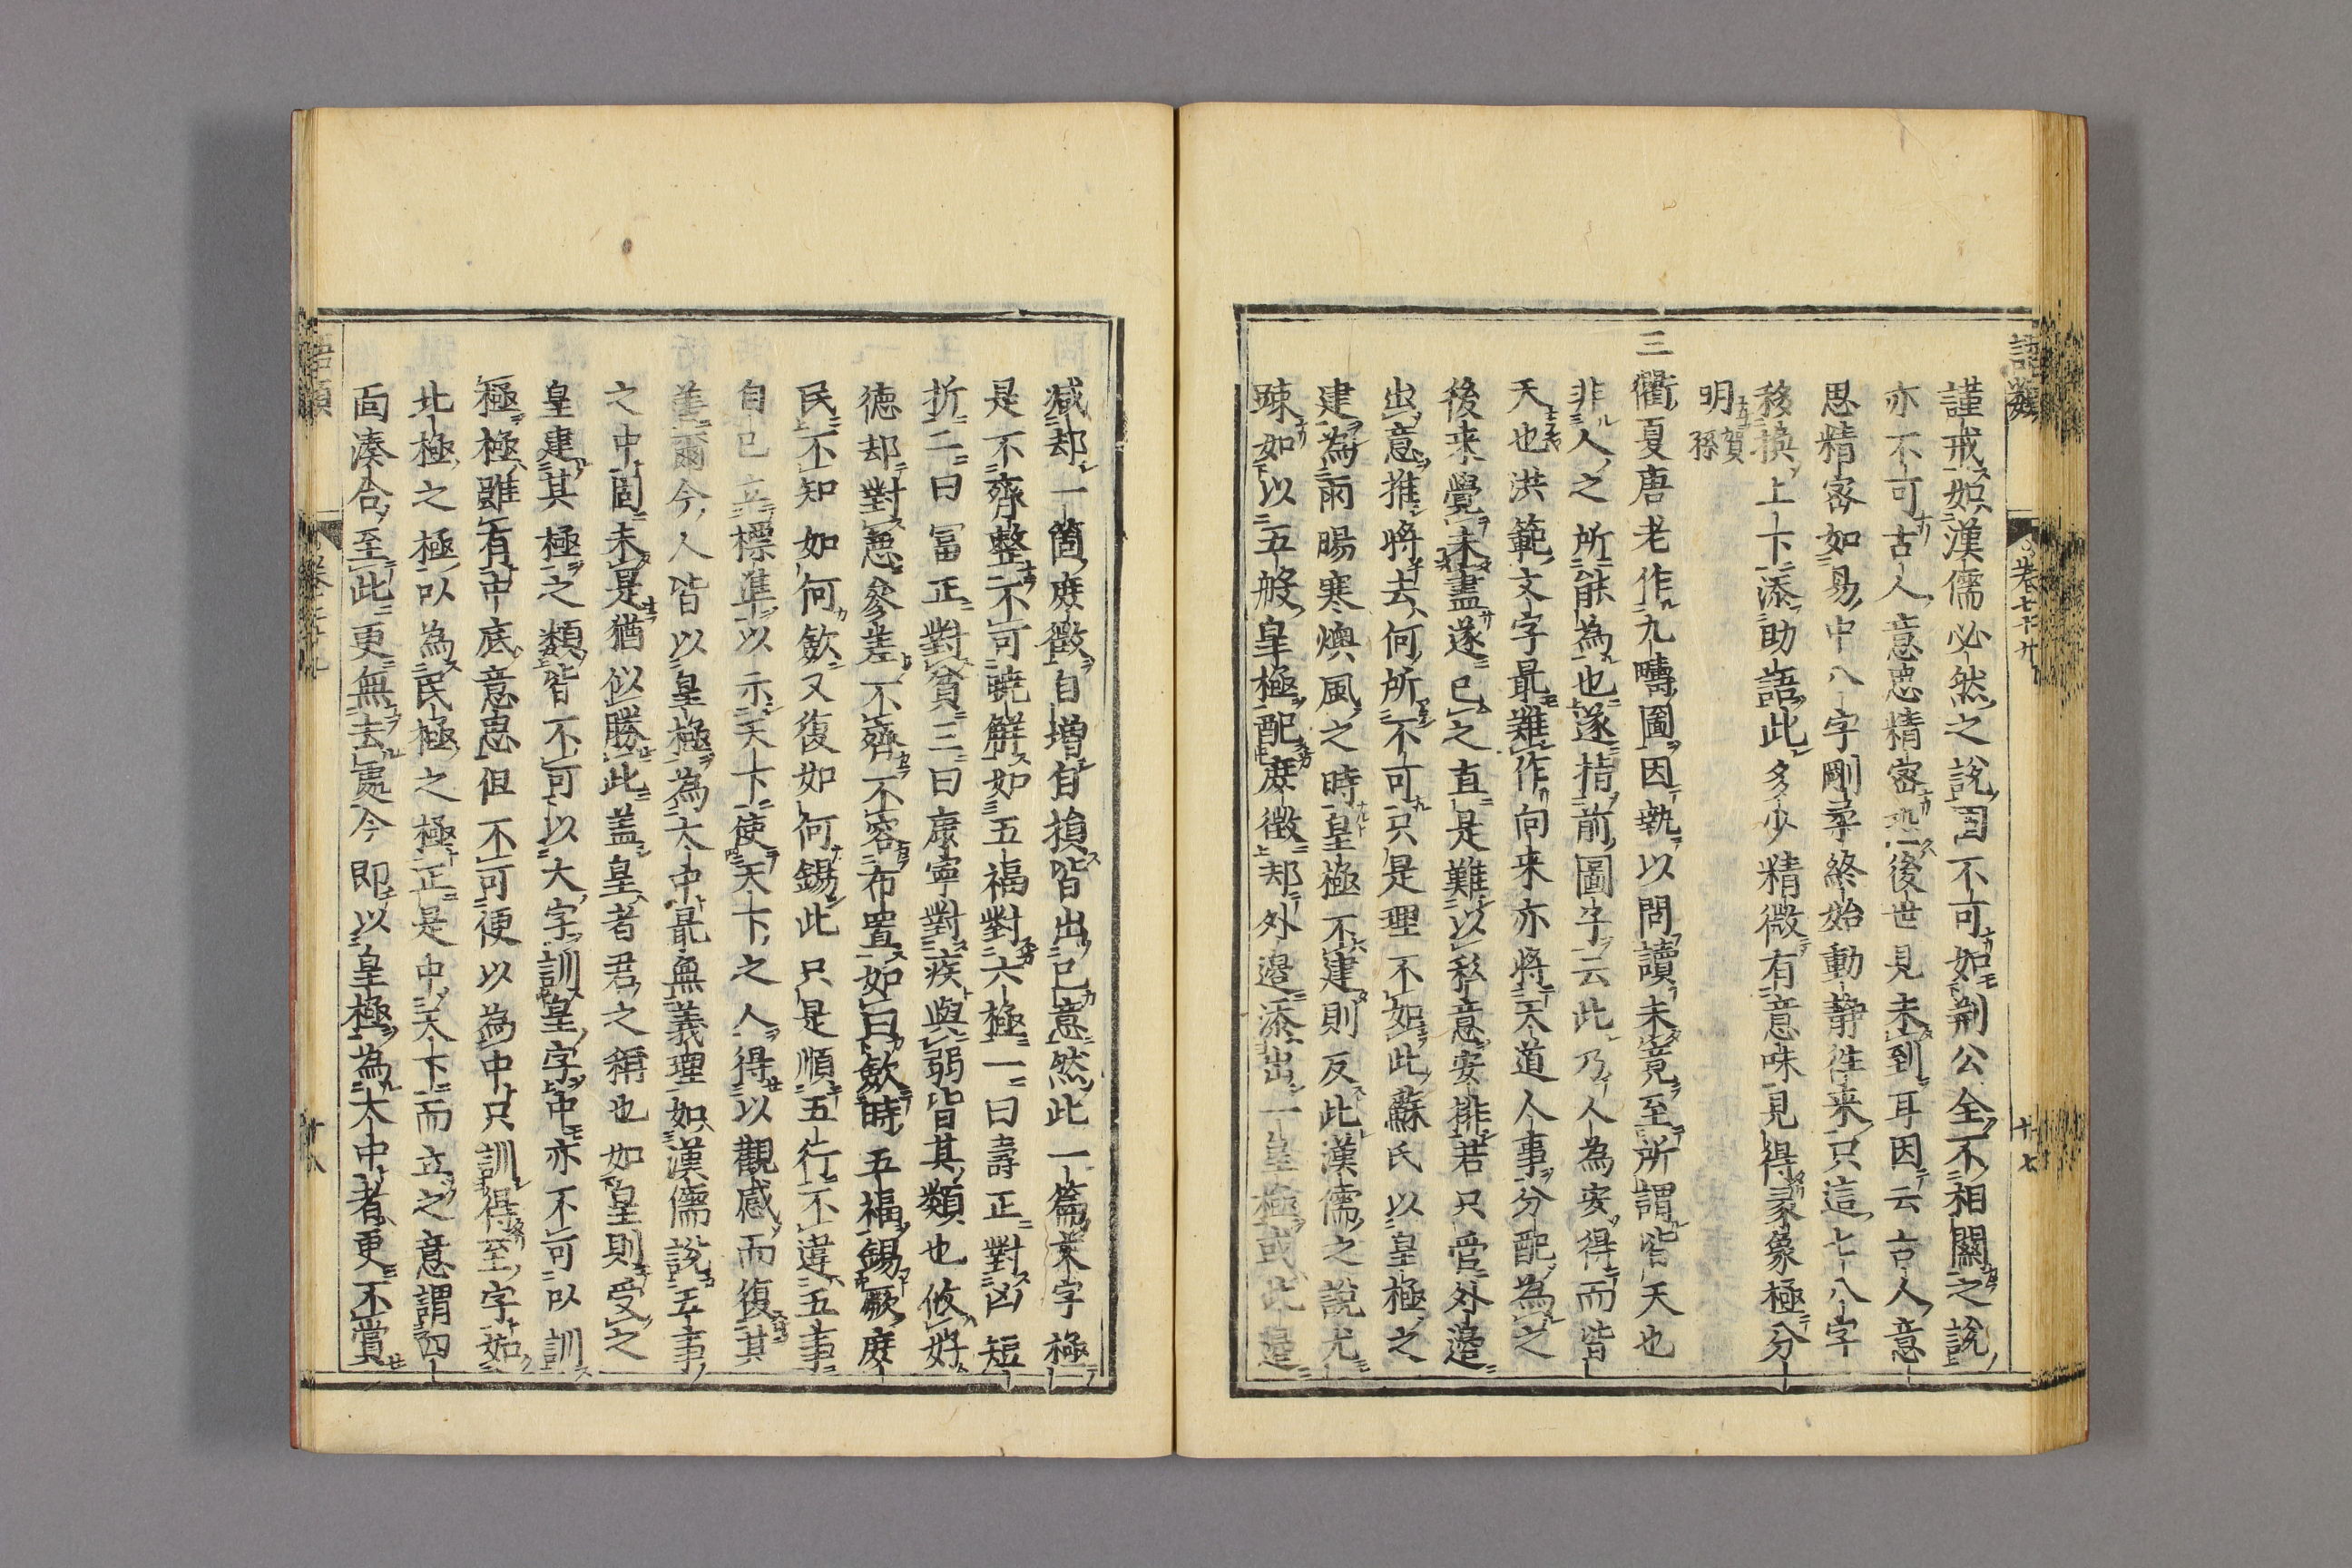 語類
卷七十九
十七
謹戒如漢儒必然之說固不可如荆公全不相關之說
亦不可古人意思精密恐後世見未到耳因云古人意
思精密如易中八字剛柔終始動静往来只這七八字
移換上下添助語此多少精微有意味見得彖象極分
明賀孫
三衢夏唐老作九疇圖因執以問讀未竟至所謂皆天也
非人之所能為也遂指前圖字云此乃人為安得而皆
天也洪範文字最難作向来亦將天道人事分配為之
後来覺未盡遂已之直是難以私意安排若只管外邊
出意推將去何所不可只是理不如此蘇氏以皇極之
建為雨暘寒燠風之時皇極不建則反此漢儒之說尤
踈如以五般皇極配庶徵却外邊添出一皇極或此邊
減却一箇庶徵自增自損皆出己意然此一篇文字極
是不齊整不可曉解如五福對六極一曰壽正對凶短
折二曰冨正對貧三曰康寧對疾與弱皆其類也攸好
德却對惡參差不齊不容布置如曰斂時五福錫厥庶
民不知如何斂又復如何錫此只是順五行不違五事
自己立標準以示天下使天下之人得以觀感而復其
善爾今人皆以皇極為大中最無義理如漢儒說五事
之中固未是猶似勝此盖皇者君之稱也如皇則受之
皇建其極之類皆不可以大字訓皇字中亦不可以訓
極極雖有中底意思但不可便以為中只訓得至字如
北極之極以為民極之極正是中天下而立之意謂四
面湊合至此更無去處今即以皇極為大中者更不賞
語類
卷七十九
十八